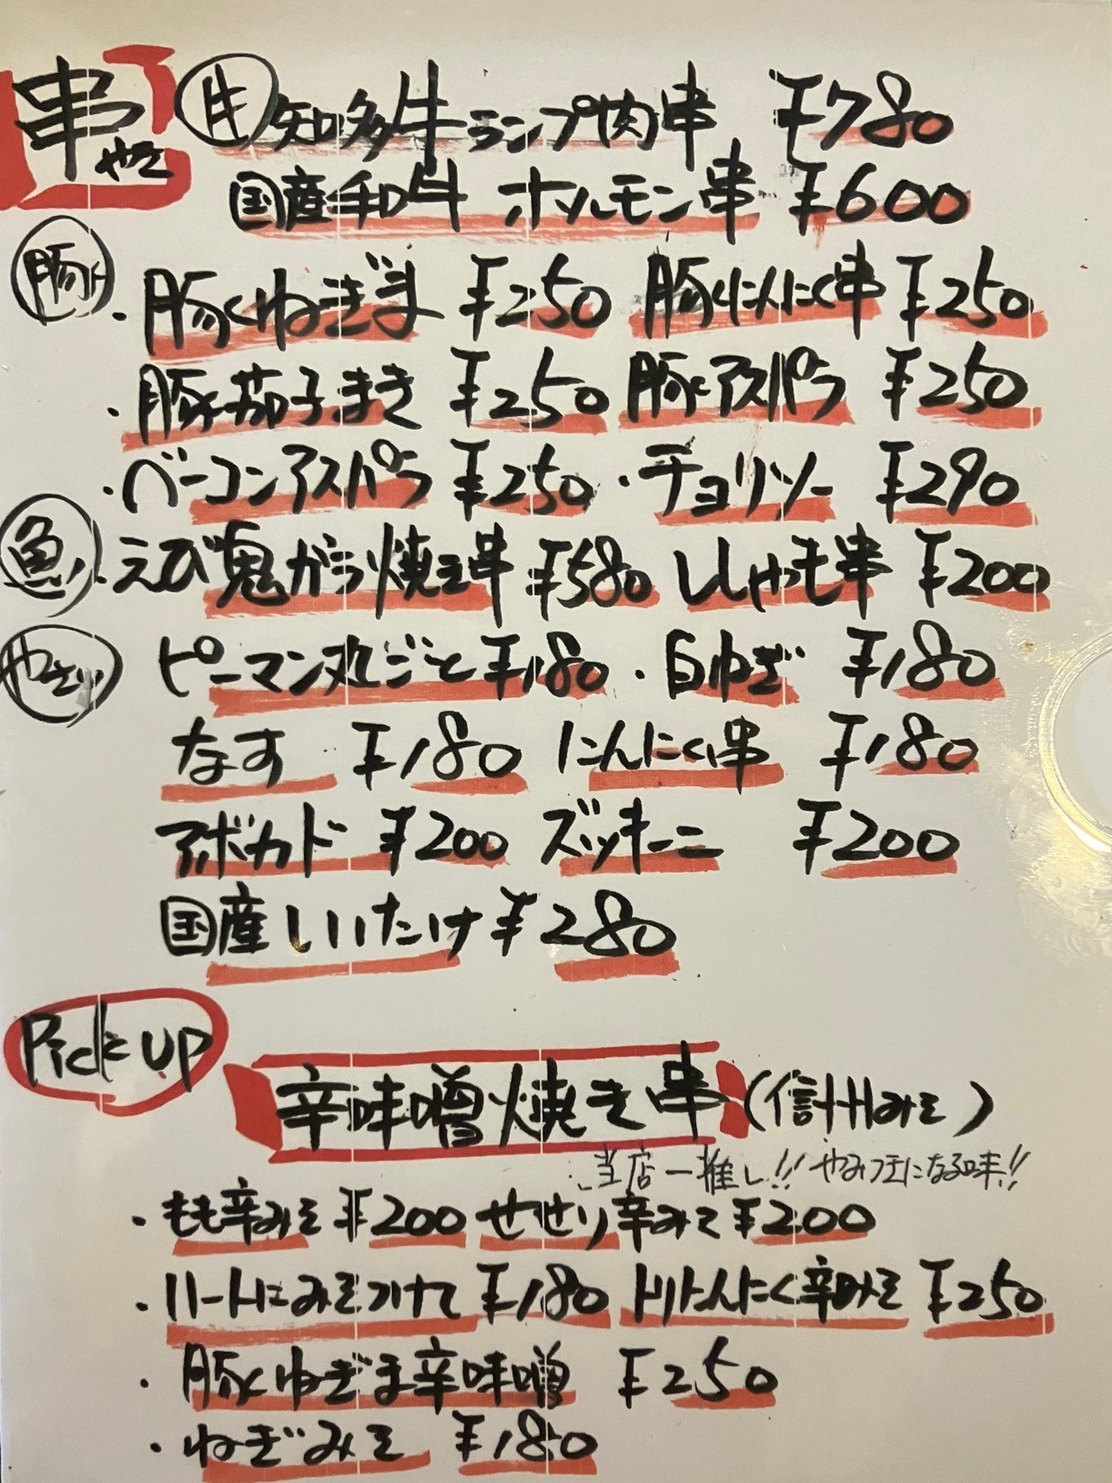 串やき 牛 知多牛ランプ肉串 ¥780
国産和牛 ホルモン串 ¥600
豚 ・豚ねぎま ¥250 豚にんにく串 ¥250
・豚茄子まき ¥250 豚アスパラ ¥250
・ベーコンアスパラ ¥250 ・チョリソー ¥290
魚 ・えび鬼ガラ焼き串 ¥580 ししゃも串 ¥200
やさい ピーマン丸ごと ¥180 ・白ねぎ ¥180
なす ¥180 にんにく串 ¥180
アボカド ¥200 ズッキーニ ¥200
国産しいたけ ¥280
Pick UP
辛味噌焼き串(信州みそ)
当店一推し!! やみつきになる味!!
・もも辛みそ ¥200 せせり辛みそ ¥200
・ハートにみそつけて ¥180 トリにんにく辛みそ ¥250
・豚ねぎま辛味噌 ¥250
・ねぎみそ ¥180